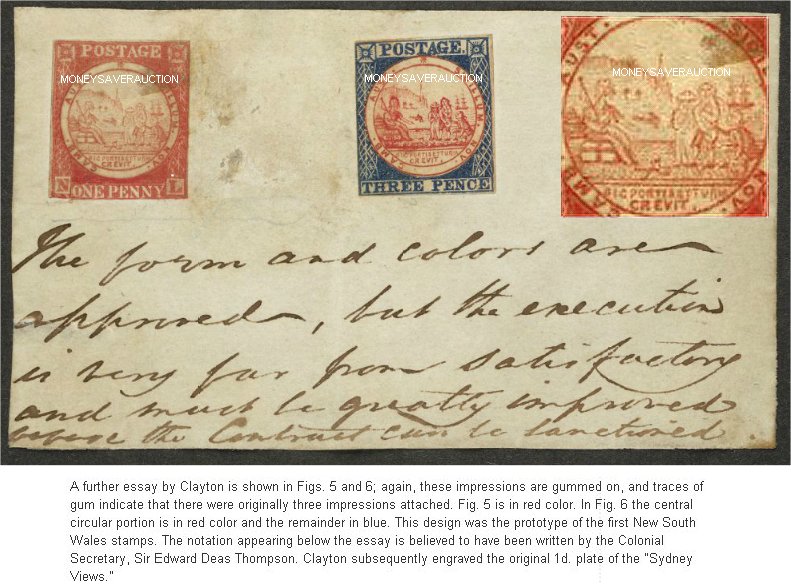 POSTAGE
MONEYSAVERAUCTION
AUST
ILLUM
CAMB
NOV
SIC FORTIS ETRURIA
CREVIT.
N ONE PENNY L
POSTAGE.
MONEYSAVERAUCTION
AUST
ILLUM
CAMB
NOV
CREVIT.
THREE PENCE
AUST.
SIGIL
MONEYSAVERAUCTION
CAMB
NOV
SIC FORTIS ETRURIA
CREVIT.
The form and colors are
approved, but the execution
is very far from satisfactory
and must be greatly improved
before the Contract can be sanctioned.
A further essay by Clayton is shown in Figs. 5 and 6; again, these impressions are gummed on, and traces of
gum indicate that there were originally three impressions attached. Fig. 5 is in red color. In Fig. 6 the central
circular portion is in red color and the remainder in blue. This design was the prototype of the first New South
Wales stamps. The notation appearing below the essay is believed to have been written by the Colonial
Secretary, Sir Edward Deas Thompson. Clayton subsequently engraved the original 1d. plate of the "Sydney
Views."